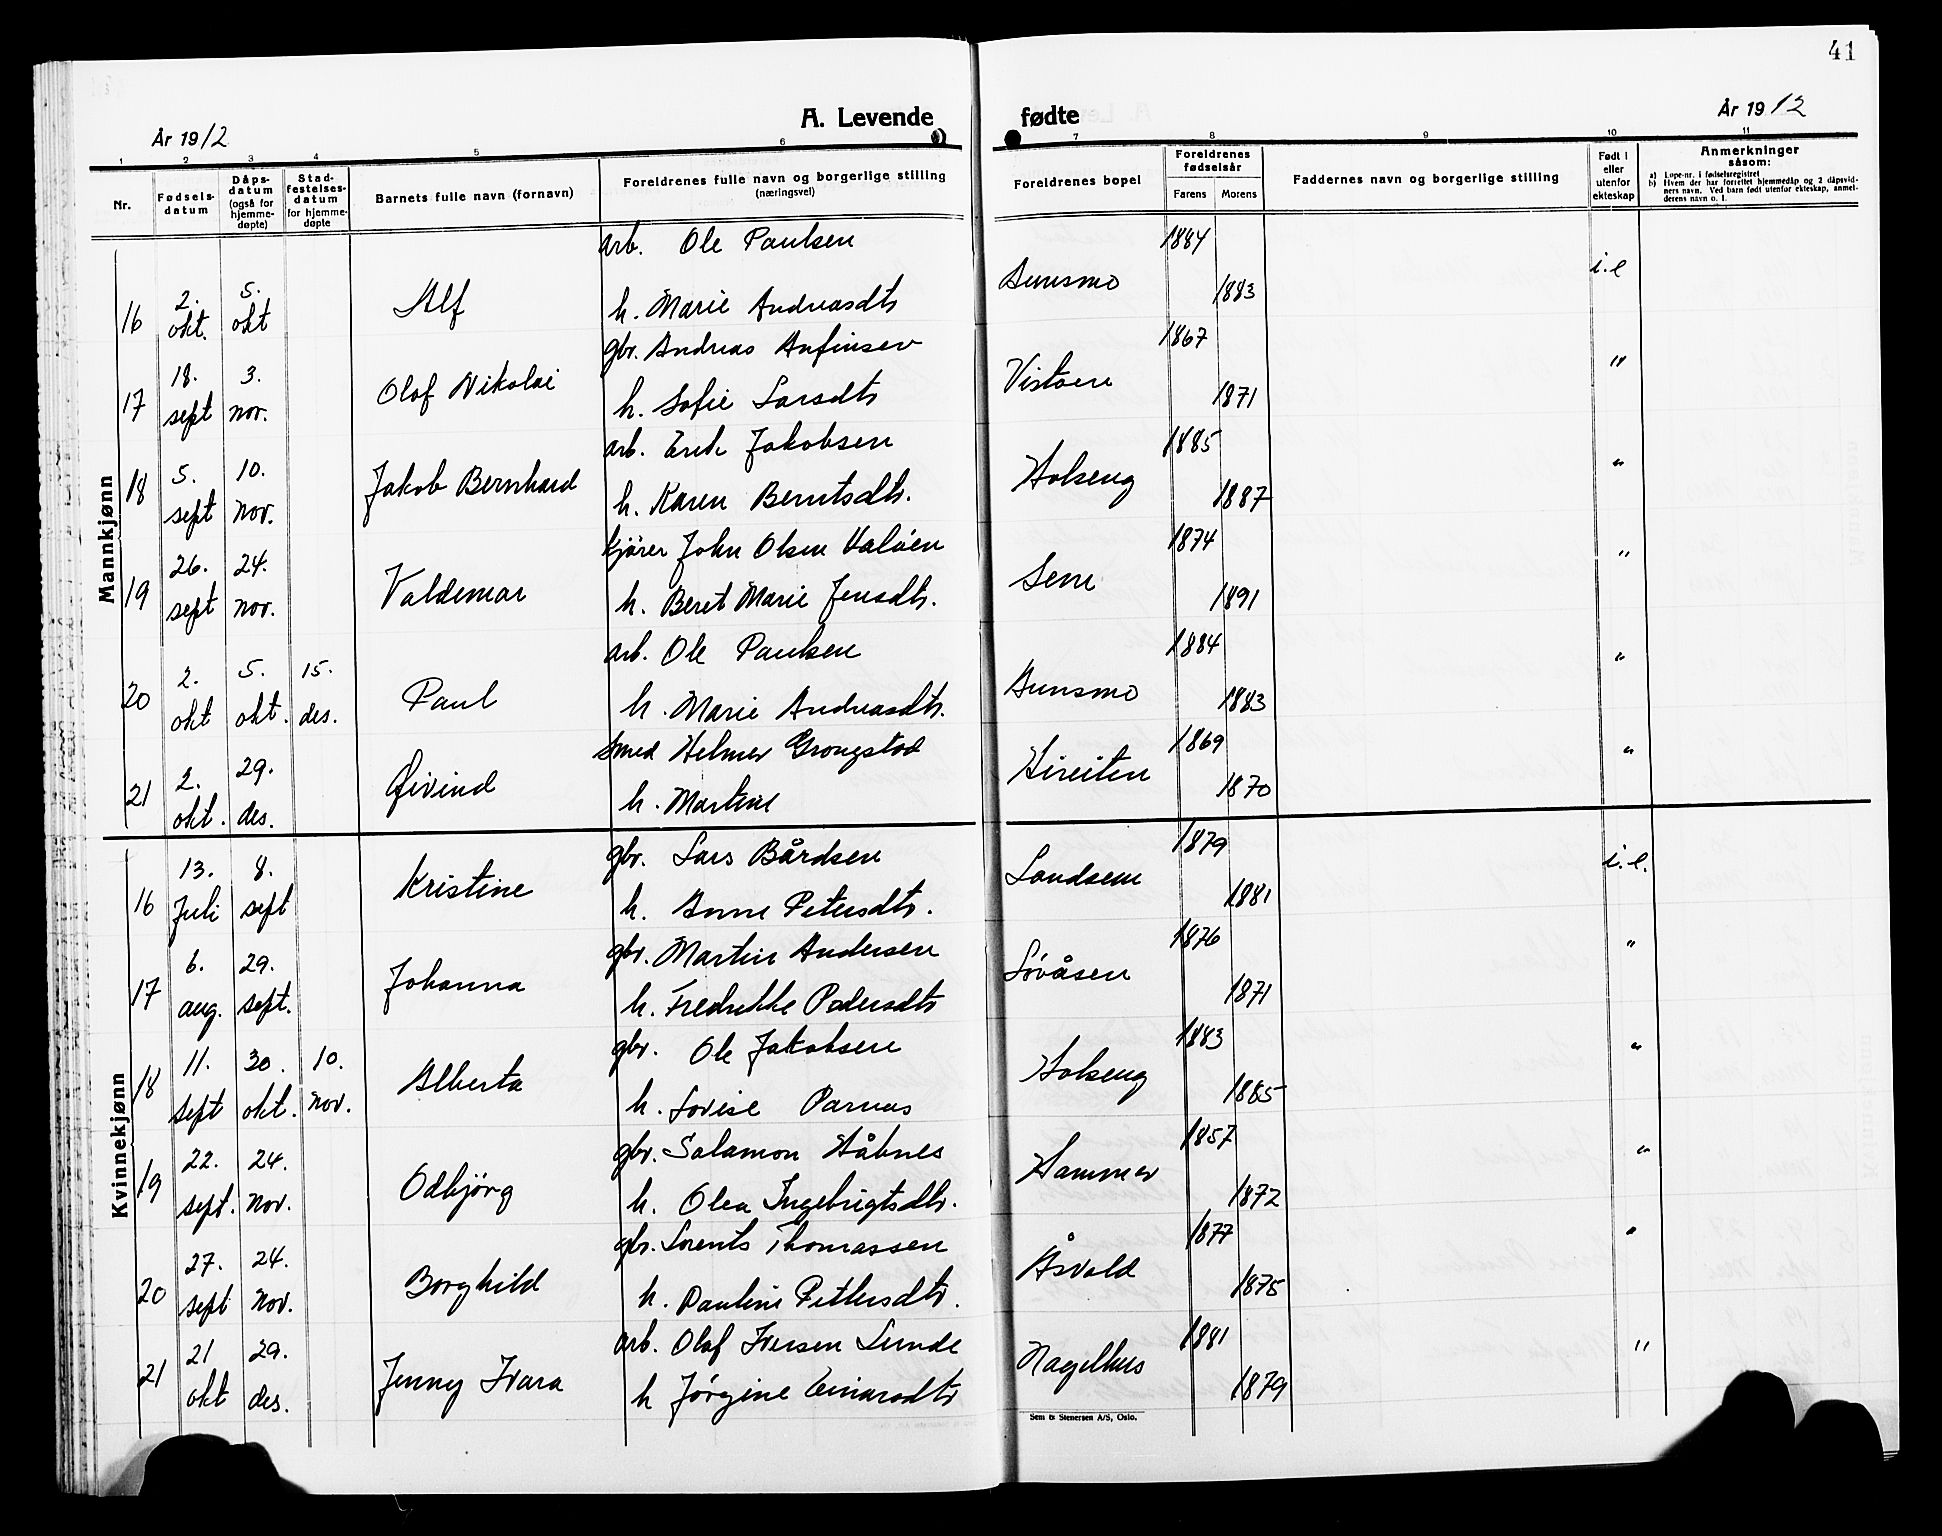 41
År 1912
A. Levende fødte
År 1912
1 2 3 4 5 6 7 8 9 10 11
Nr.
Fødsels-datum
Dåps-datum (også for hjemme-døpte)
Stad-festelses-datum for hjemme-døpte
Barnets fulle navn (fornavn)
Foreldrenes fulle navn og borgerlige stilling (næringsvei)
Foreldrenes bopel
Foreldrenes fødselsår
Farens Morens
Faddernes navn og borgerlige stilling
Født i eller utenfor ekteskap
Anmerkninger såsom:
a) Lope-nr. i fødselsregistret
b) Hvem der har forrettet hjemmedåp og 2 dåpsvidners navn. Ved barn født utenfor ekteskap, anmelderens navn o. l.
Mannkjønn
arb. Ole Paulsen 1884
16 2. okt. 5. okt Alf h. Marie Andreasdtr Aunsmo 1883 i.e
gbr. Andreas Anfinsen 1867
17 18. sept 3. nov. Olaf Nikolai h. Sofie Larsdtr Vistven 1871 "
arb. Erik Jakobsen 1885
18 5. sept 10. nov. Jakob Bernhard h. Karen Berntsdtr. Holseng 1887 "
kjører John Olsen Valøen 1874
19 26. sept 24. nov. Valdemar h. Beret Marie Jensdtr. Sem 1891 "
arb. Ole Paulsen 1884
20 2. okt 5. okt. 15. des. Paul h. Marie Andreasdtr. Aunsmo 1883 "
smed Helmer Grongstad 1869
21 2. okt. 29. des. Øivind h. Martine Hireiten 1870 "
Kvinnekjønn
gbr. Lars Bårdsen 1879
16 13. Juli 8. sept Kristine h. Anne Petersdtr. Landsem 1881 i.e.
gbr. Martin Andersen 1876
17 6. aug. 29. sept. Johanna h. Fredrikke Pedersdtr Løvåsen 1871 "
gbr. Ole Jakobsen 1883
18 11. sept 30. okt. 10. nov. Alberta h. Lovise Parnas Holseng 1885 "
gbr. Salamon Håbnes 1857
19 22. sept. 24. nov. Odbjørg h. Olea Ingebrigtsdtr. Hammer 1872 "
gbr. Lorents Thomassen 1877
20 27. sept 24. nov. Borghild h. Pauline Pettersdtr. Åsvold 1875 "
arb. Olaf Iversen Lunde 1881
21 21 okt 29. des. Jenny Ivara h Jørgine Einarsdtr Nagelhus 1879 "
Sem & Stenersen A/S, Oslo.